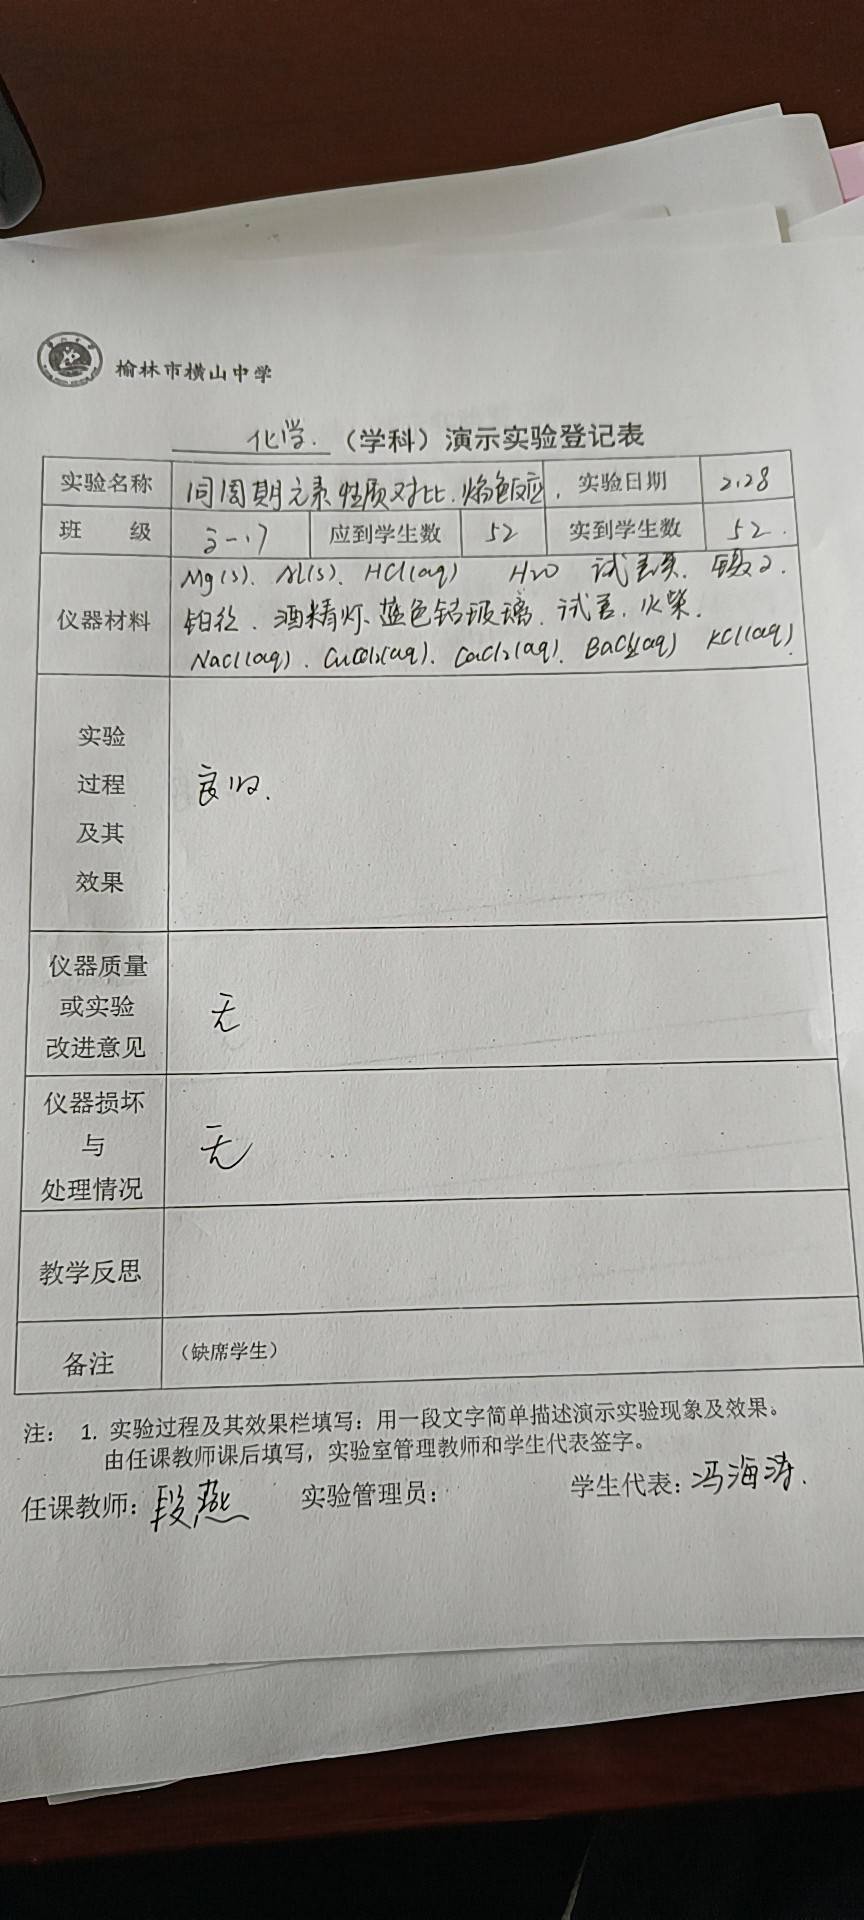 榆林市横山中学
化学.（学科）演示实验登记表
实验名称 同周期元素性质对比.焰色反应. 实验日期 2.28
班 级 应到学生数 52 实到学生数 52.
仪器材料
Mg(s)、Al(s)、HCl(aq) H2O 试管夹. 镊子.
铂丝.酒精灯、蓝色钴玻璃.试管.火柴.
NaCl(aq)、CuCl2(aq)、CaCl2(aq)、BaCl2(aq) KCl(aq)
实验
过程
及其
效果
良好.
仪器质量
或实验
改进意见
无
仪器损坏
与
处理情况
无
教学反思
备注 （缺席学生）
注： 1. 实验过程及其效果栏填写：用一段文字简单描述演示实验现象及效果。
由任课教师课后填写，实验室管理教师和学生代表签字。
任课教师：段燕 实验管理员： 学生代表：冯海涛.